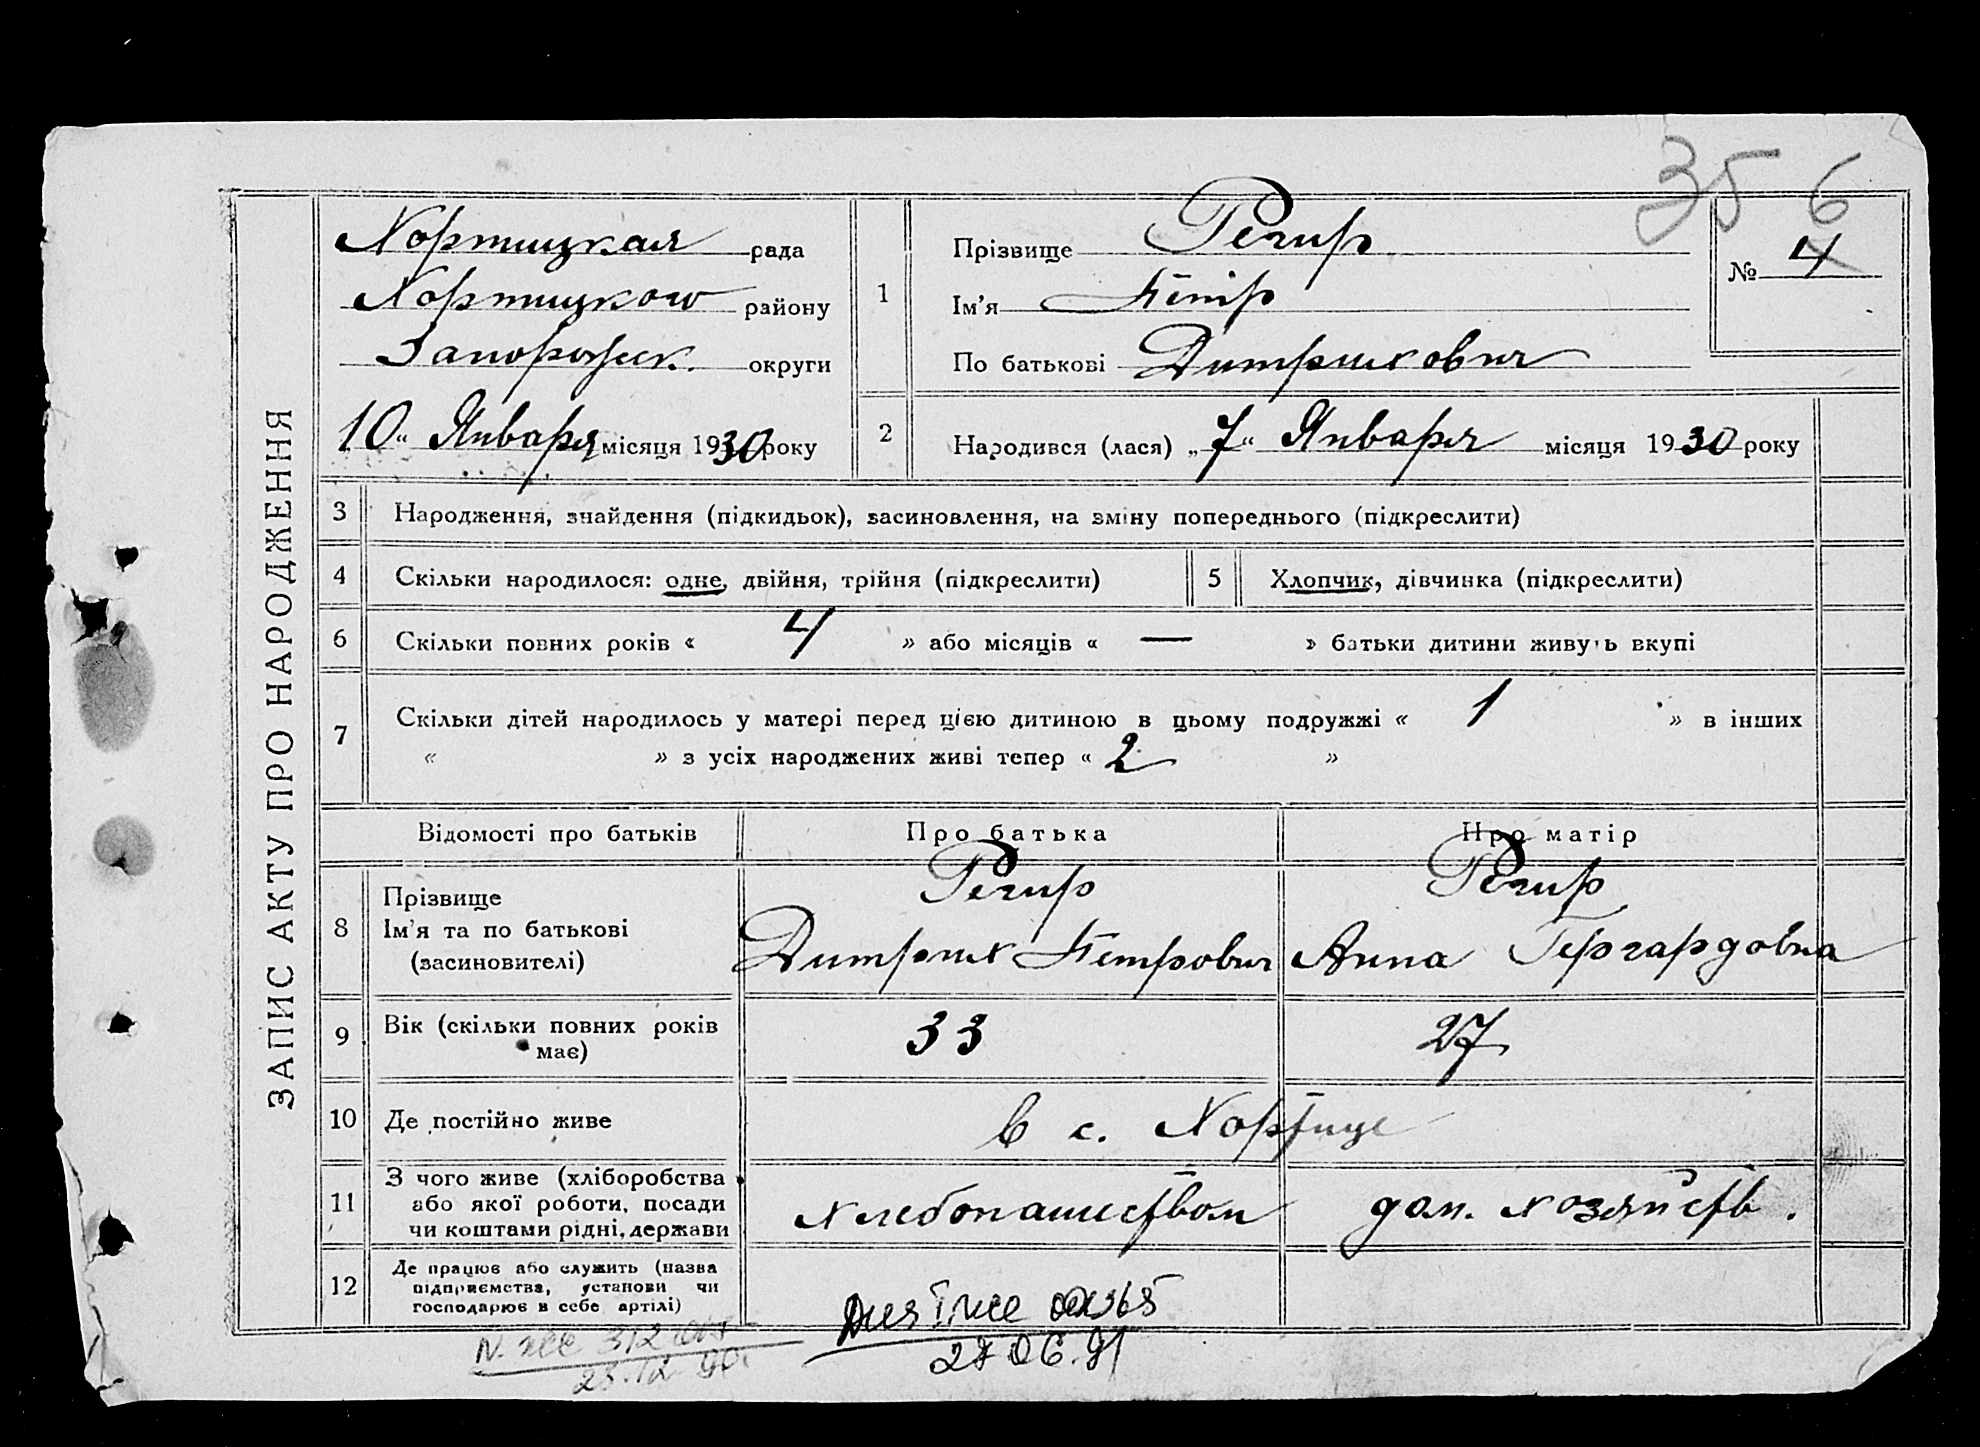 35 6
ЗАПИС АКТУ ПРО НАРОДЖЕННЯ
Хортицкая рада
Хортицкого району
Запорожск. округи
10 „ Января місяця 1930 року
1
Прізвище Регир
Ім'я Петр
По батькові Дитрихович
№ 4
2
Народився (лася) „ 7 “ Января місяця 1930 року
3 Народження, знайдення (підкидьок), засиновлення, на зміну попереднього (підкреслити)
4 Скільки народилося: одне, двійня, трійня (підкреслити)
5 Хлопчик, дівчинка (підкреслити)
6 Скільки повних років « 4 » або місяців « — » батьки дитини живуть вкупі
7 Скільки дітей народилось у матері перед цією дитиною в цьому подружжі « 1 » в інших
« » з усіх народжених живі тепер « 2 »
Відомості про батьків Про батька Про матір
8
Прізвище
Ім'я та по батькові
(засиновителі)
Регир
Дитрих Петрович
Регир
Анна Гергардовна
9 Вік (скільки повних років
має)
33 27
10 Де постійно живе в с. Хортице
11
З чого живе (хліборобства
або якої роботи, посади
чи коштами рідні, держави
хлебопашеством дом. хозяйств.
12
Де працює або служить (назва
підприємства, установи чи
господарює в себе артілі)
27 06.91
23.12.90.